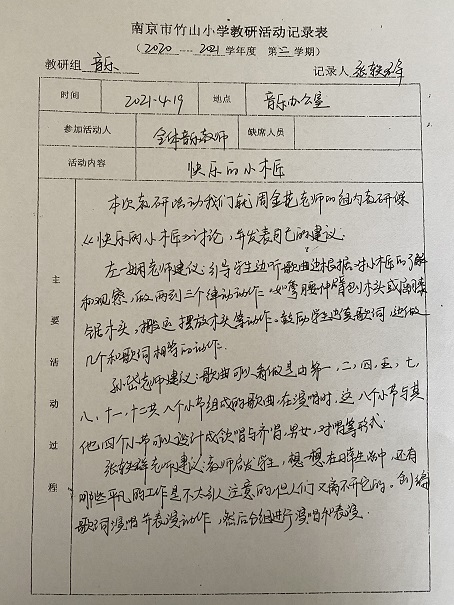 南京市竹山小学教研活动记录表
(2020 --- 2021 学年度 第二学期)
教研组 音乐 记录人 张轶群
时间 2021.4.19 地点 音乐办公室
参加活动人 全体音乐教师 缺席人员
活动内容 快乐的小木匠
主要活动过程
本次教研活动我们就周金花老师的组内教研课
《快乐的小木匠》讨论,并发表自己的建议.
左一娴老师建议:引导学生边听歌曲边根据对小木匠的了解
和观察,做两到三个律动动作.如弯腰伸臂刨木头或
锯木头,搬运、摆放木头等动作.鼓励学生边集歌词,边做
几个和歌词相等的动作.
孙岱老师建议:歌曲可以看做是由第一,二,四,五,七,
八,十一,十二共八个小节组成的歌曲,在演唱时,这八个小节与其
他四个小节可以设计成领唱与齐唱,男女,对唱等形式.
张轶群老师建议:教师启发学生,想一想在日常生活中,还有
哪些平凡的工作是不太引人注意的,但人们又离不开它的。创编
歌词演唱并表演动作,然后分组进行演唱和表演.